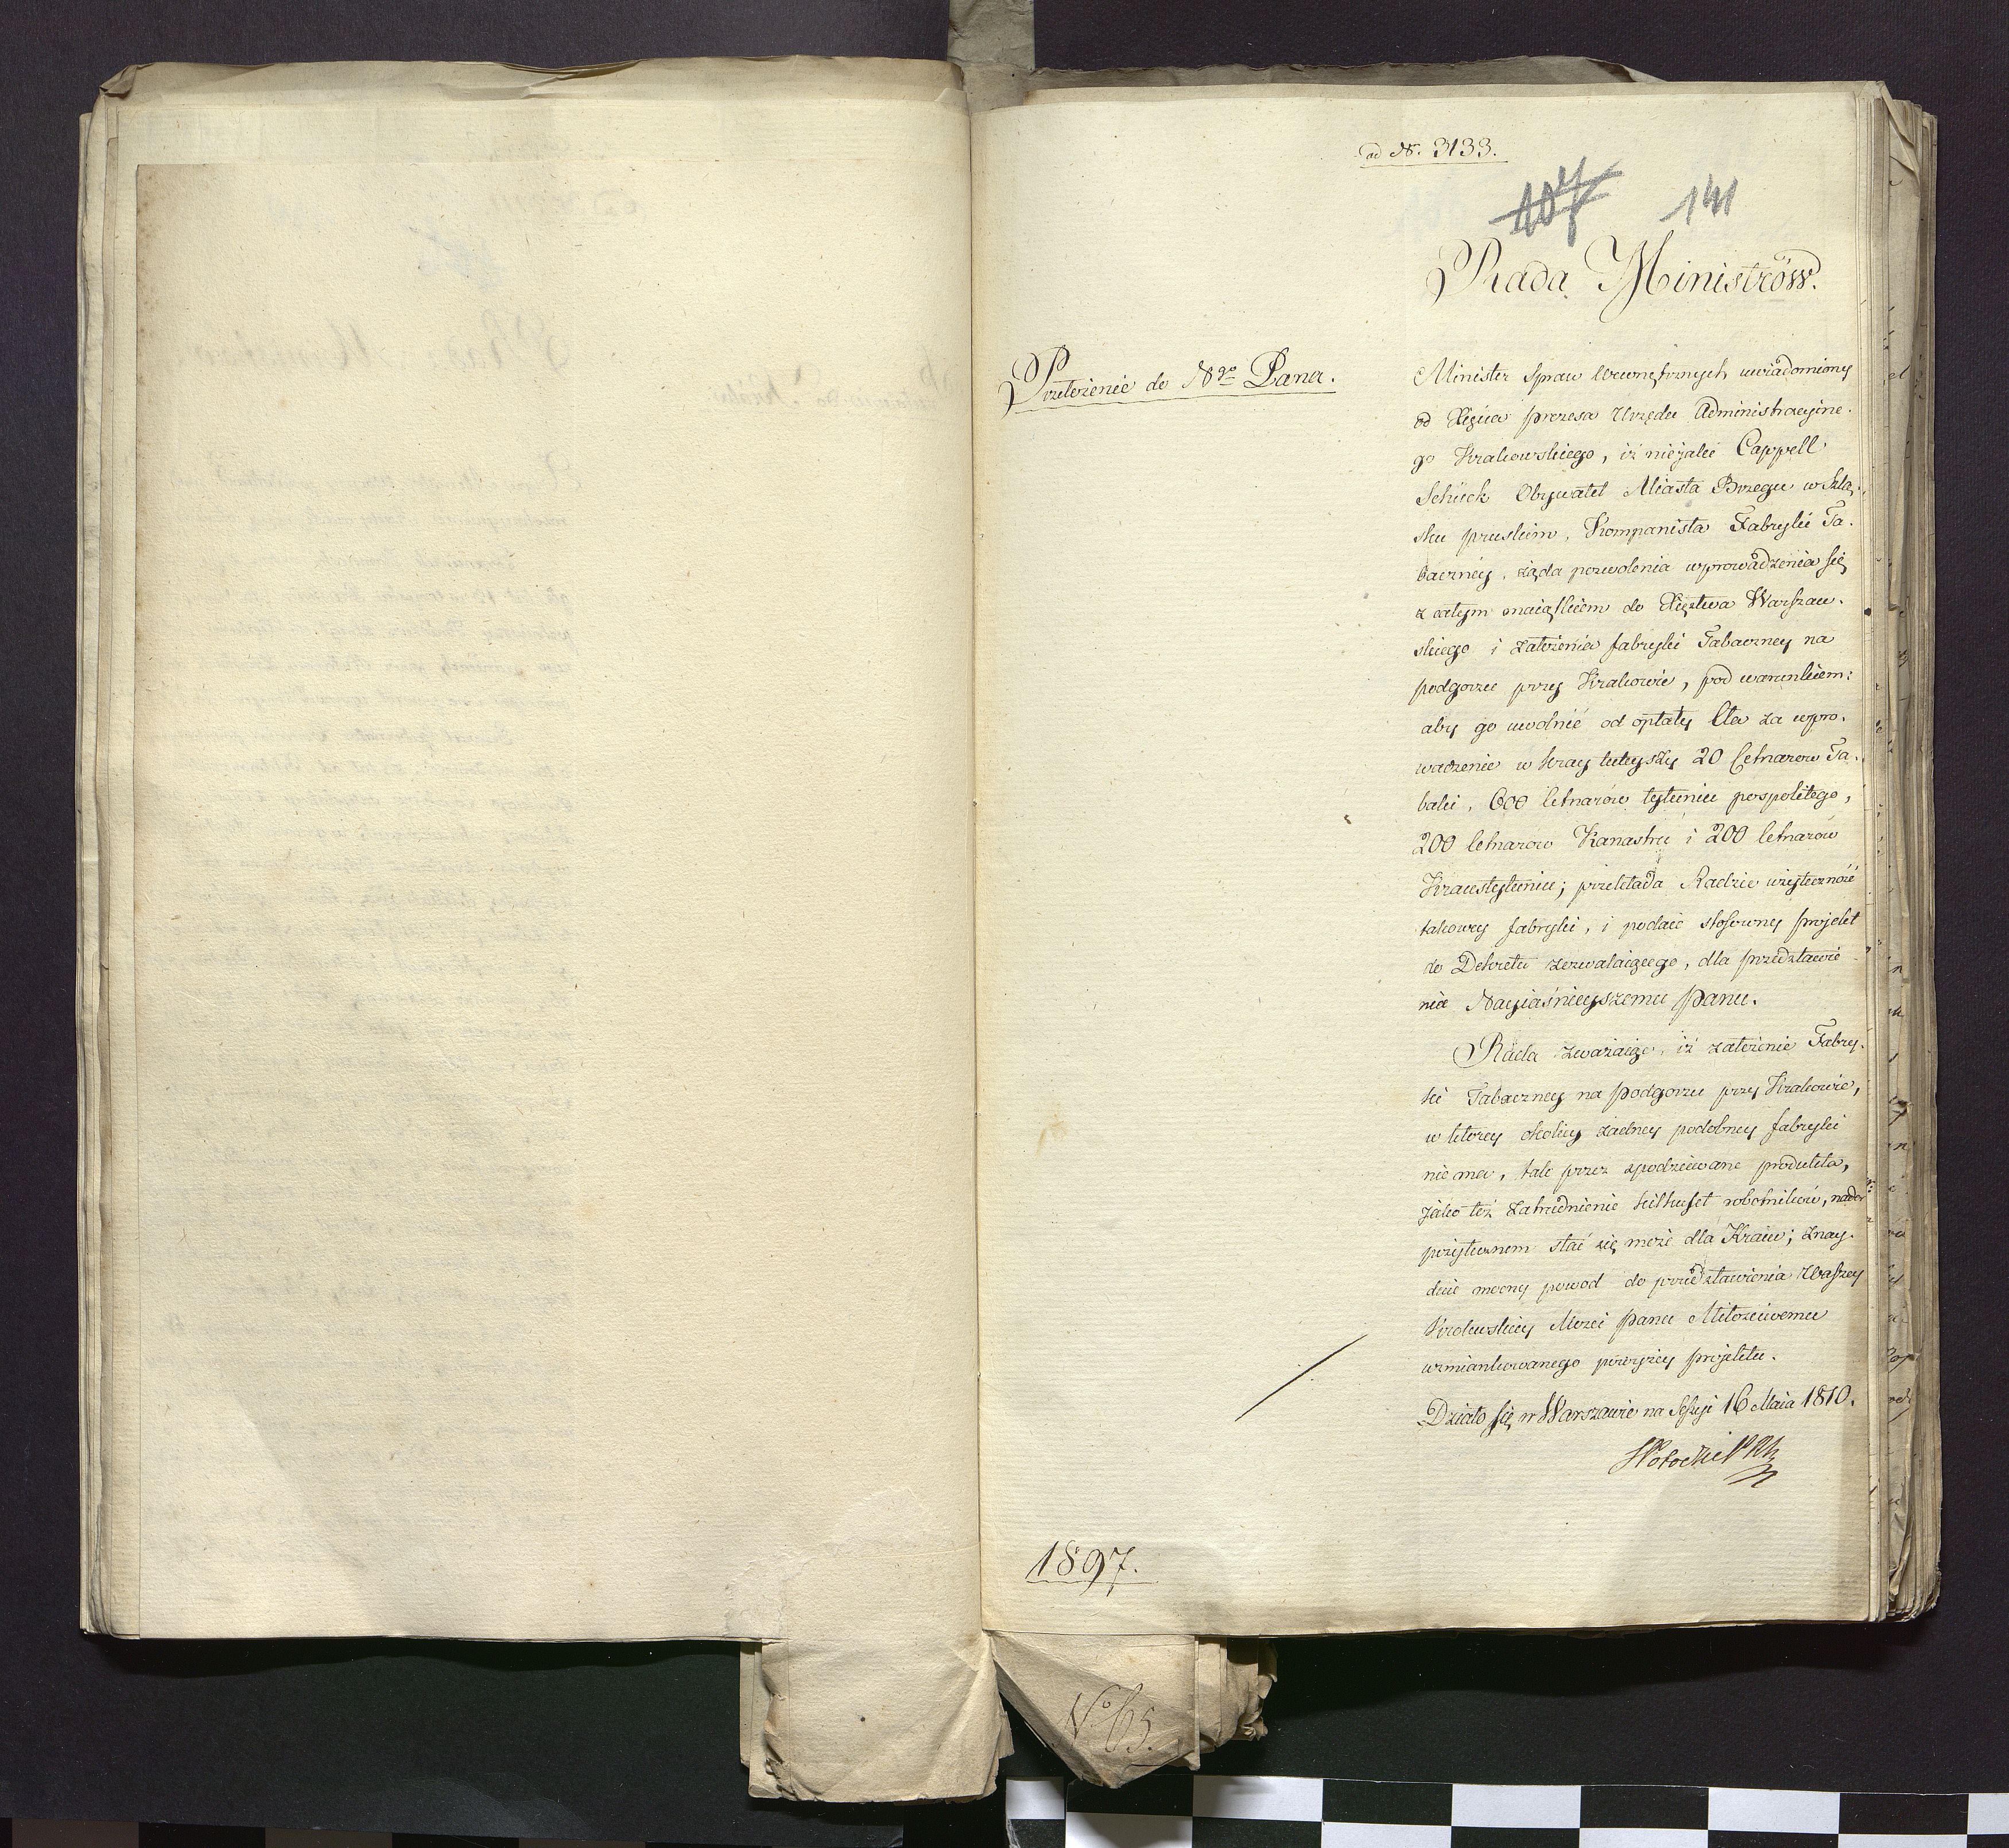 ad N. 3133.
107 141
Rada Ministrów.
Przełożenie do N<sup>go</sup> Pana.
Minister Spraw Wewnętrznych uwiadomiony
od Xięcia prezesa Urzędu Administracyine.
go Krakowskiego, iż niejaki Cappell
Schück Obywatel Miasta Brzegu w Szlą.
sku pruskim, Kompanista Fabryki Ta.
baczney, żąda pozwolenia wprowadzenia się
z całym maiątkiem do Xięstwa Warszaw.
skiego i założenia fabryki Tabaczney na
podgorzu przy Krakowie, pod warunkiem:
aby go uwolnić od opłaty Cła za wpro.
wadzenie w kray tuteyszy 20 Cetnarow Ta.
baki, 600 Cetnarów tytuniu pospolitego,
200 Cetnarow Kanastru i 200 Cetnarow
Kraustytuniu; przekłada Radzie użyteczność
takowey fabryki, i podaie stosowny projekt
do Dekretu zezwalaiącego, dla przedstawie
nia Nayiaśnieyszemu Panu.
Rada zważaiąc, iż założenie Fabry.
ki Tabaczney na podgorzu przy Krakowie,
w ktorey okolicy żadney podobney fabryki
niema, tak przez spodziewane produkta,
jako też zatrudnienie kilkuset robotników, nader
pożytecznem stać się może dla Kraiu; znay.
duie mocny powod do przedstawienia Waszey
Krolewskiey Mości Panu Miłościwemu
wzmiankowanego powyżey projektu.
Działo się w Warszawie na Sessyi 16 Maia 1810.
1897.
N<sup>o</sup> 65.